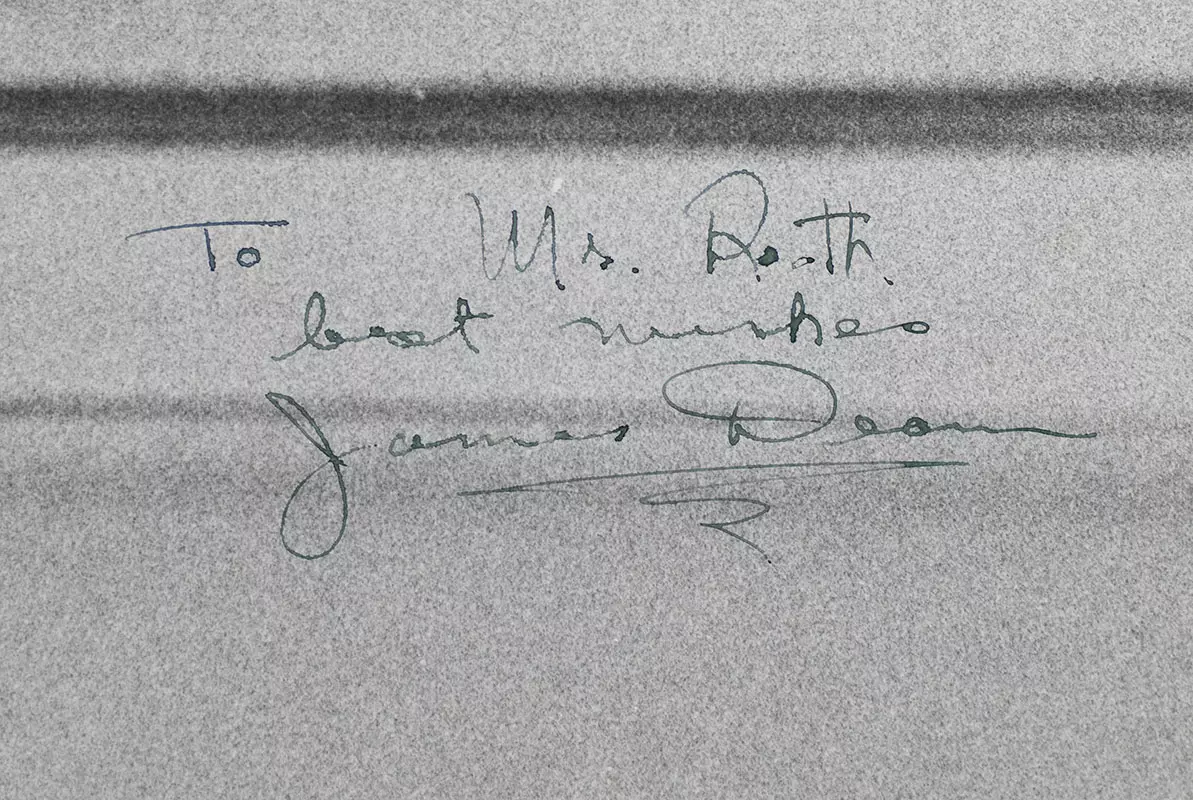 To Mr. Roth
best wishes
James Dean